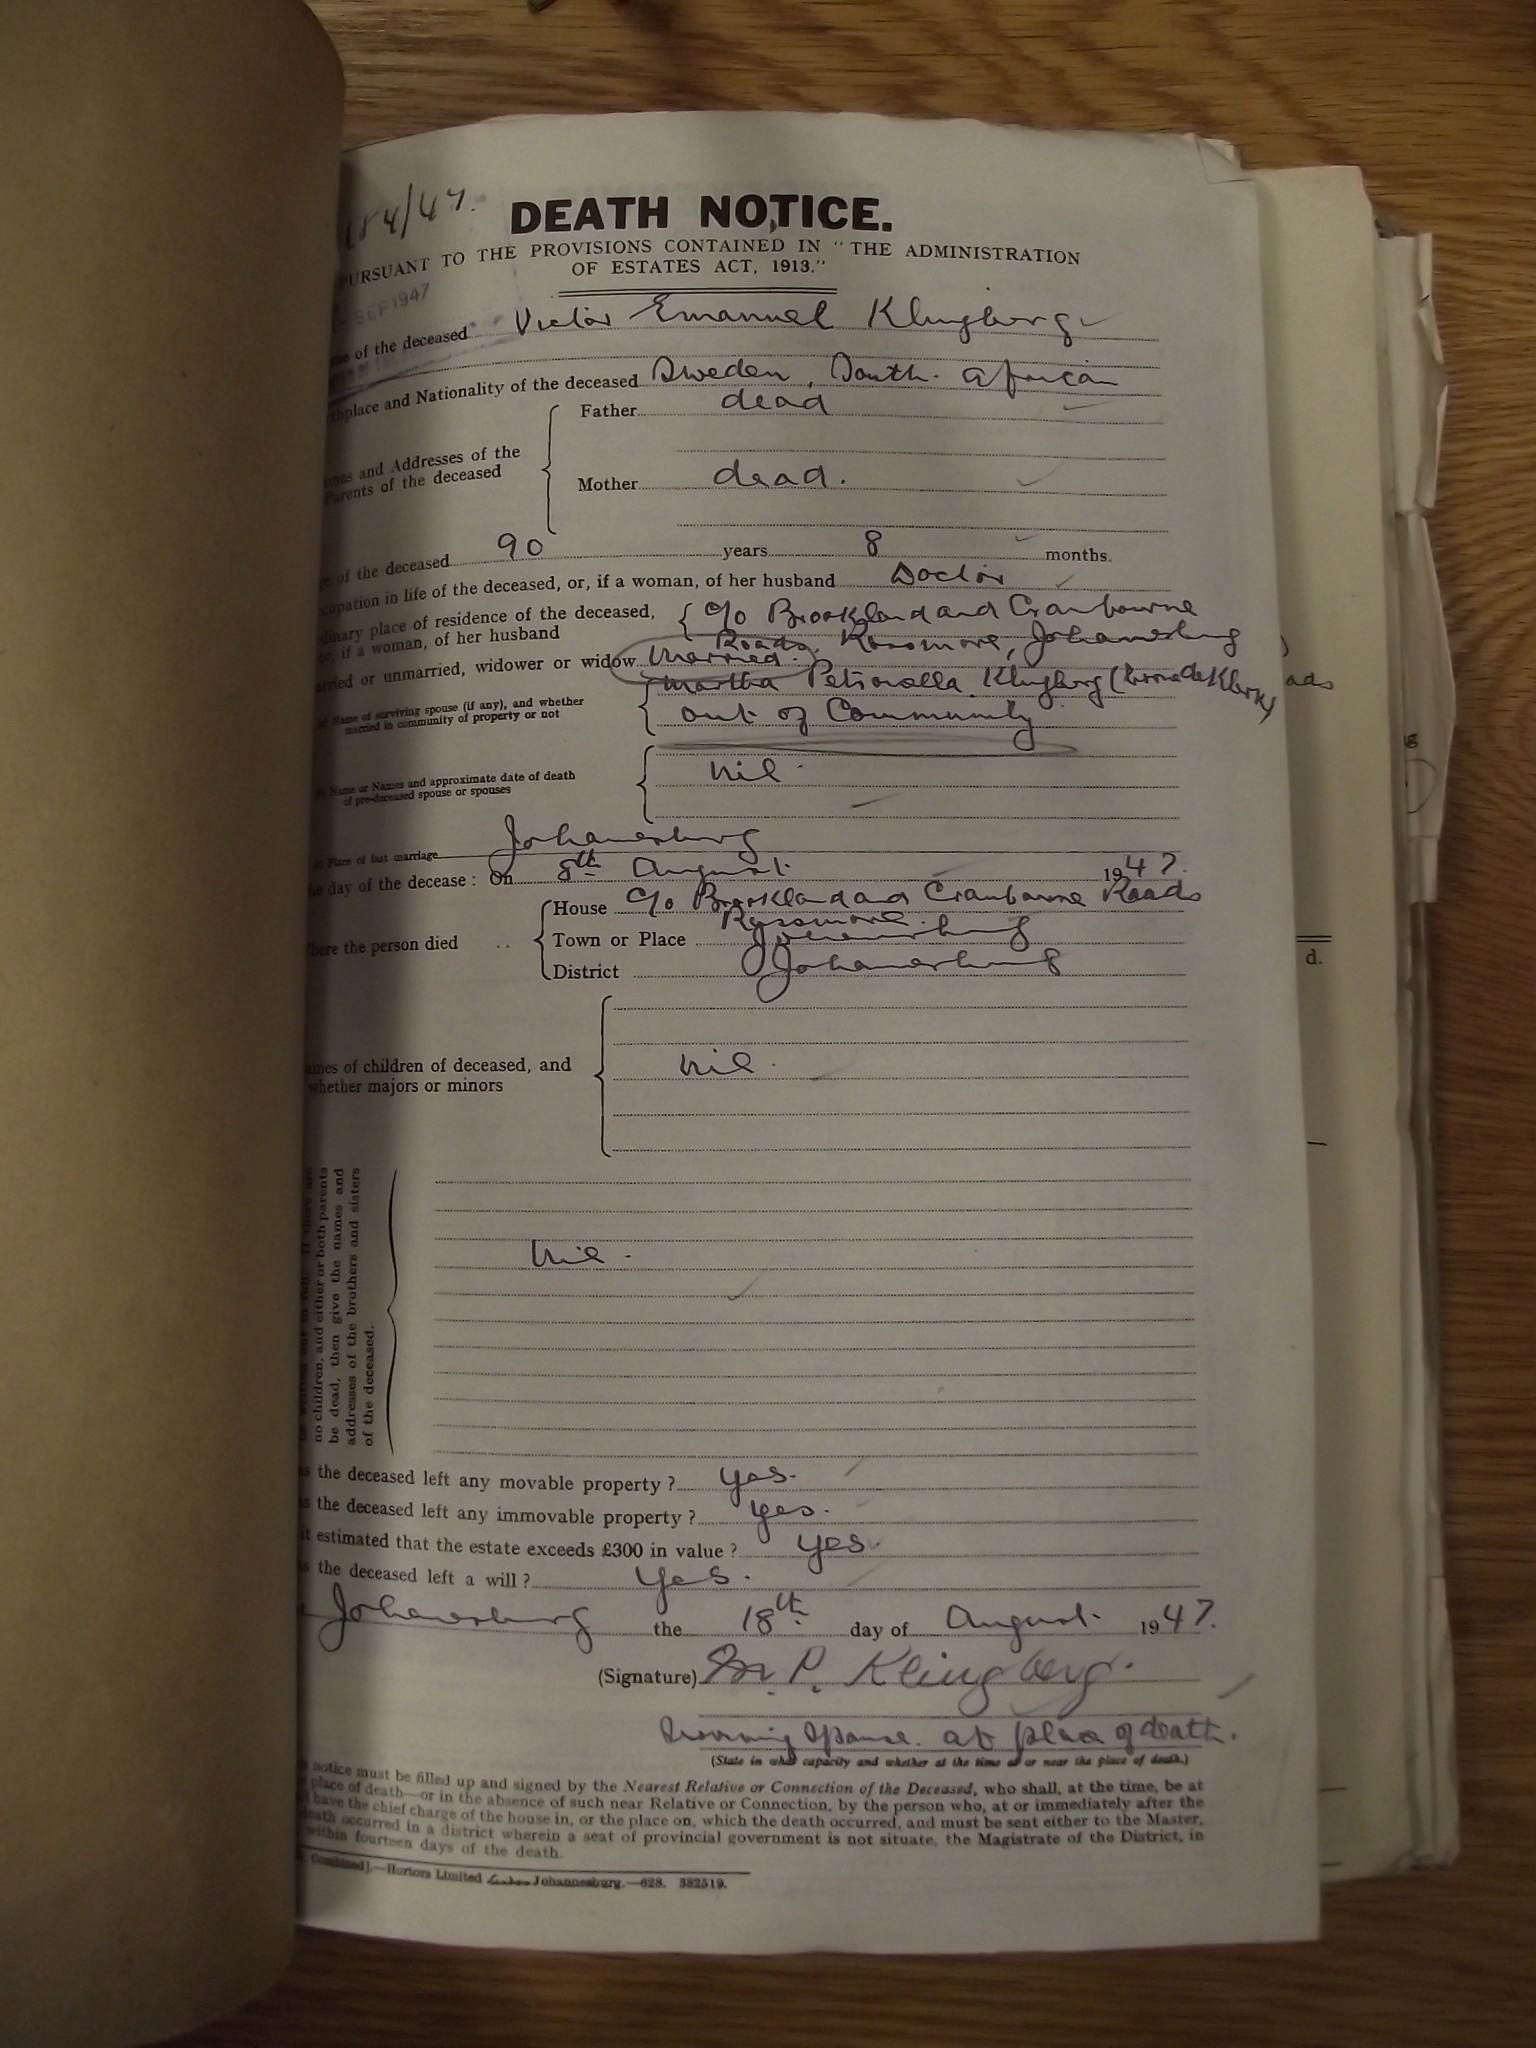 184/47.
DEATH NOTICE.
PURSUANT TO THE PROVISIONS CONTAINED IN "THE ADMINISTRATION
OF ESTATES ACT, 1913."
SEP 1947
of the deceased Victor Emanuel Klingberg
thplace and Nationality of the deceased Sweden, South African
Father dead
mes and Addresses of the
Parents of the deceased
Mother dead.
of the deceased 90 years 8 months.
cupation in life of the deceased, or, if a woman, of her husband Doctor
dinary place of residence of the deceased, c/o Brookland and Cranbourne
or, if a woman, of her husband Roads, Rossmore, Johannesburg
arried or unmarried, widower or widow Married.
Name of surviving spouse (if any), and whether Martha Petronella Klingberg (born de Klerk)
married in community of property or not out of Community
ads
Name or Names and approximate date of death nil.
of pre-deceased spouse or spouses
Place of last marriage Johannesburg
he day of the decease: On 8th August 1947.
House c/o Brookland and Cranbourne Roads
Rossmore.
here the person died .. Town or Place Johannesburg
District Johannesburg
d.
ames of children of deceased, and nil.
whether majors or minors
no children, and either or both parents
be dead, then give the names and
addresses of the brothers and sisters
of the deceased.
nil.
s the deceased left any movable property? yes.
s the deceased left any immovable property? yes.
it estimated that the estate exceeds £300 in value? yes
s the deceased left a will? yes.
Johannesburg the 18th day of August 1947.
(Signature) M. P. Klingberg.
Surviving Spouse. at place of death.
(State in what capacity and whether at the time at or near the place of death.)
notice must be filled up and signed by the Nearest Relative or Connection of the Deceased, who shall, at the time, be at
place of death—or in the absence of such near Relative or Connection, by the person who, at or immediately after the
have the chief charge of the house in, or the place on, which the death occurred, and must be sent either to the Master,
death occurred in a district wherein a seat of provincial government is not situate, the Magistrate of the District, in
within fourteen days of the death.
Combined].—Hortors Limited Johannesburg.—628. 382519.